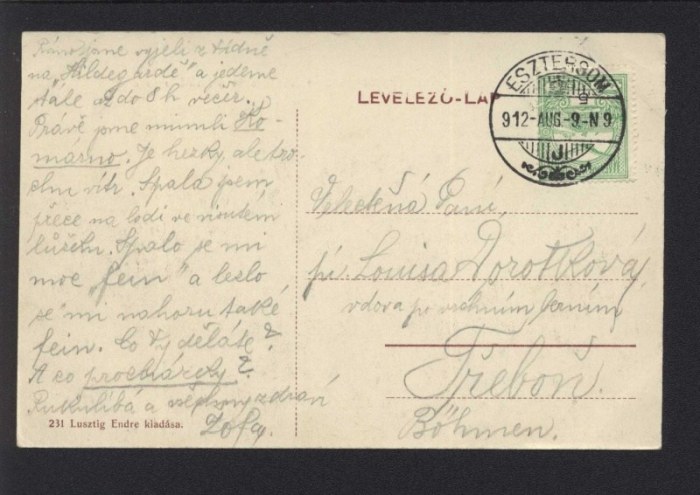 Ráno jsme vyjeli z Vídně
na "Hildegardě" a jedeme
stále až do 8 h večer.
Právě jsme minuli Ko-
márno. Je hezky, ale tro-
chu vítr. Spala jsem
přece na lodi ve
Spalo se mi
moc "fein" a lezlo
se mi nahoru také
fein. Co Ty děláte?
A co procházky?
Rukulíbá a všechny zdraví
Žofa
231 Lusztig Endre kiadása.
LEVELEZŐ-LAP
ESZTERGOM
912-AUG-9-N9
J
Velectěná Paní,
pí Louisa Dorotková
vdova po vrchním
Třeboň.
Böhmen.